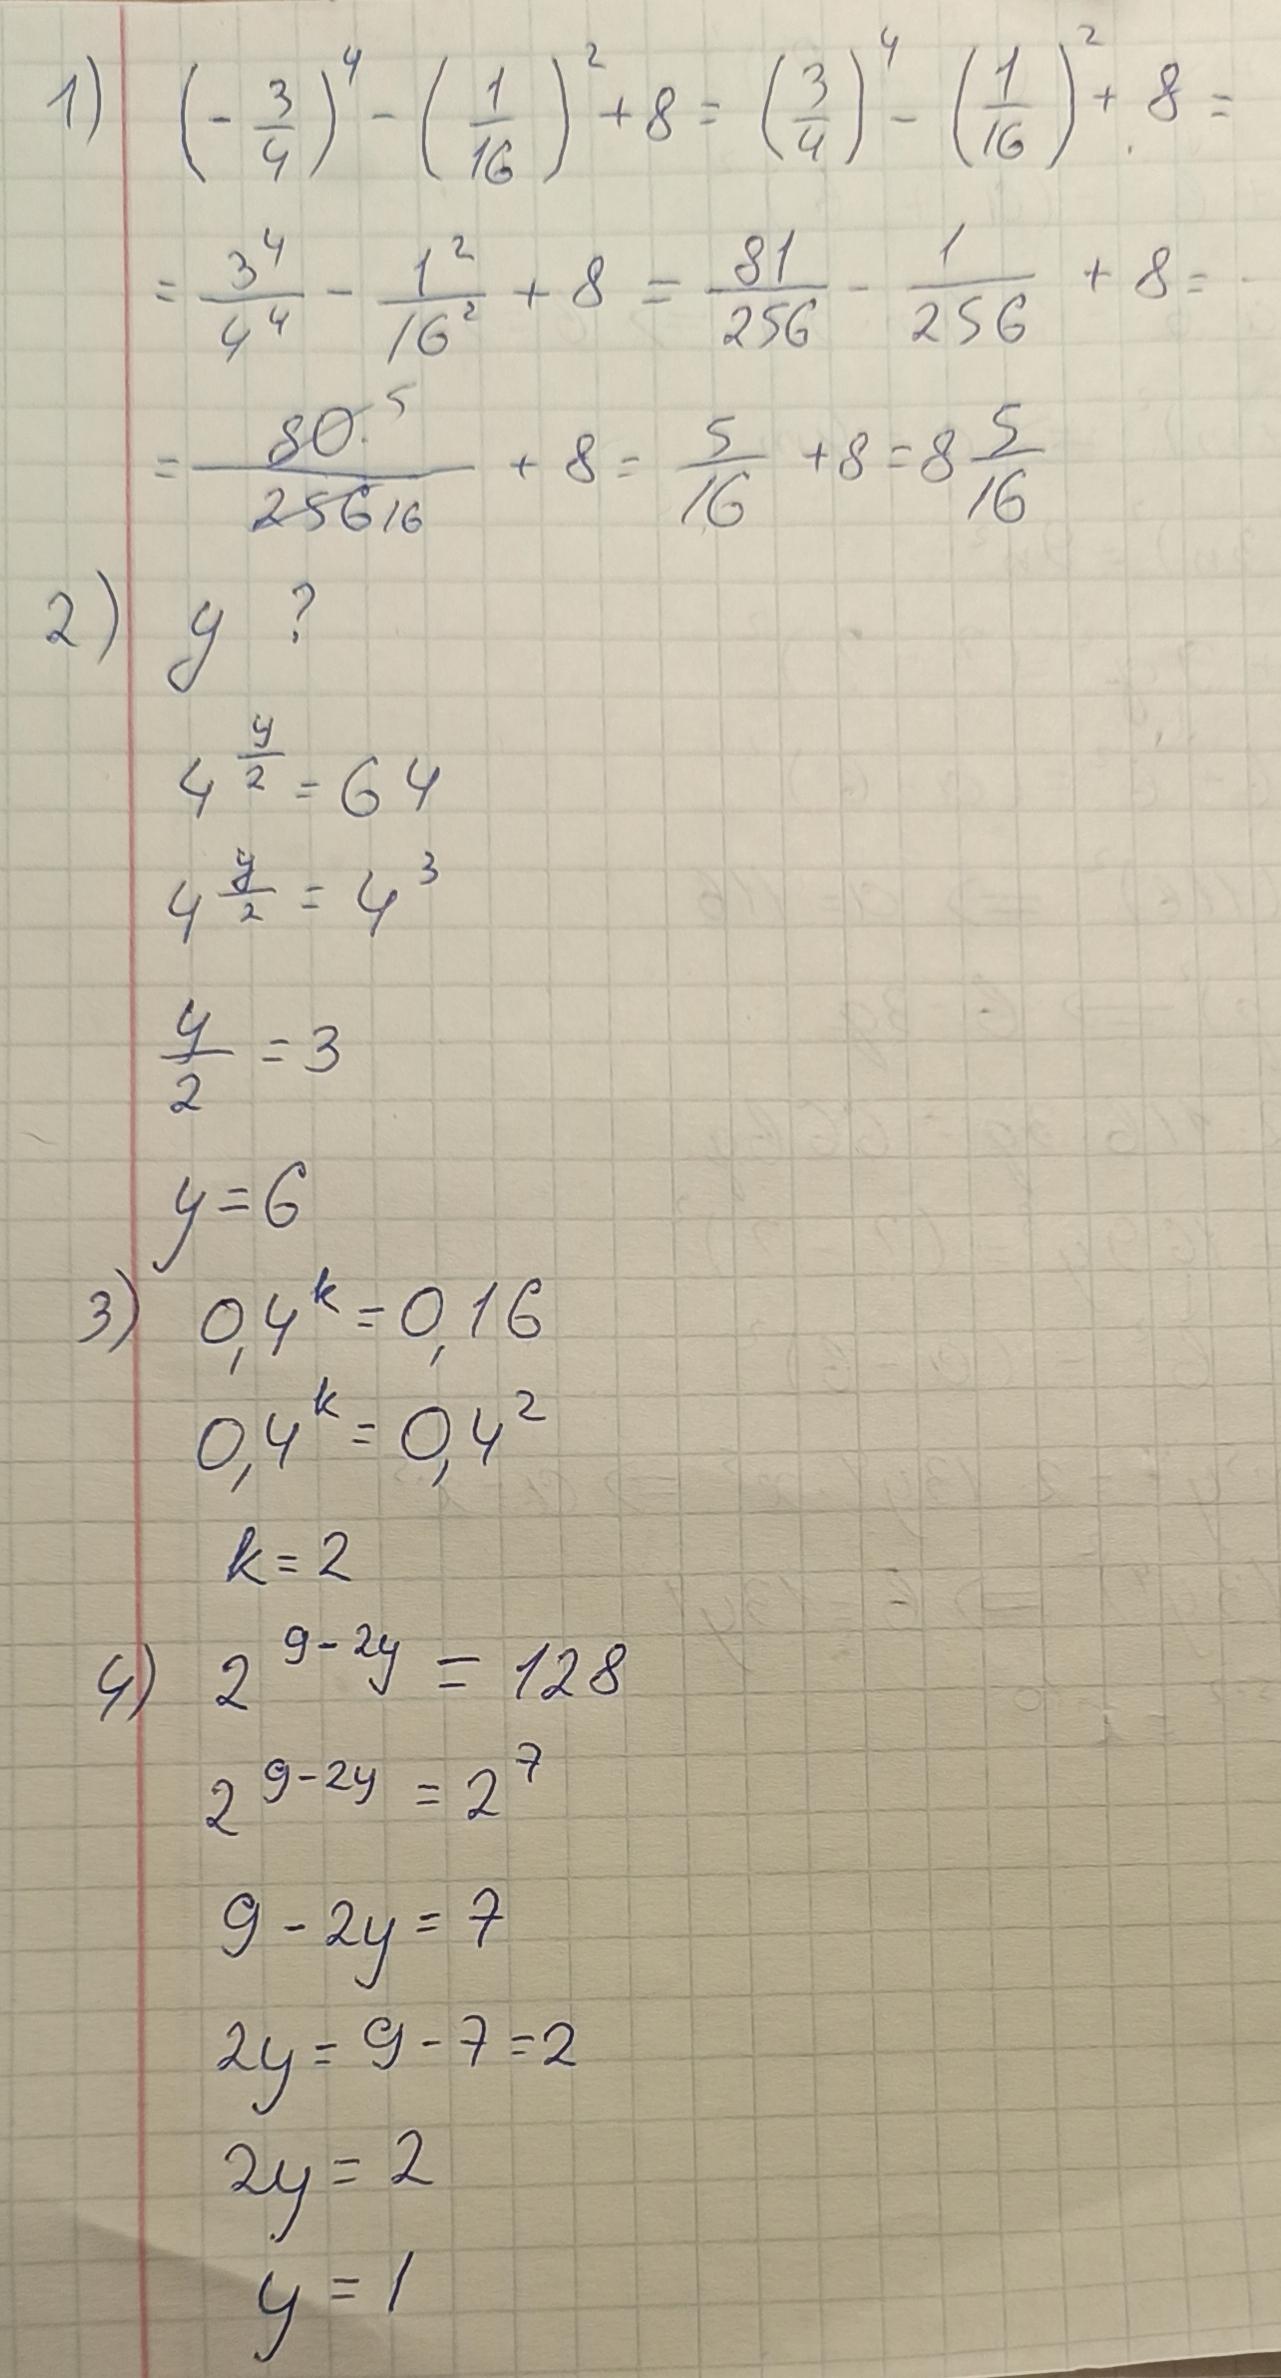 1) (-3/4)^4 - (1/16)^2 + 8 = (3/4)^4 - (1/16)^2 + 8 =
= 3^4/4^4 - 1^2/16^2 + 8 = 81/256 - 1/256 + 8 =
= 80 5/256 16 + 8 = 5/16 + 8 = 8 5/16
2) y ?
4^(y/2) = 64
4^(y/2) = 4^3
y/2 = 3
y = 6
3) 0,4^k = 0,16
0,4^k = 0,4^2
k = 2
4) 2^(9-2y) = 128
2^(9-2y) = 2^7
9 - 2y = 7
2y = 9 - 7 = 2
2y = 2
y = 1